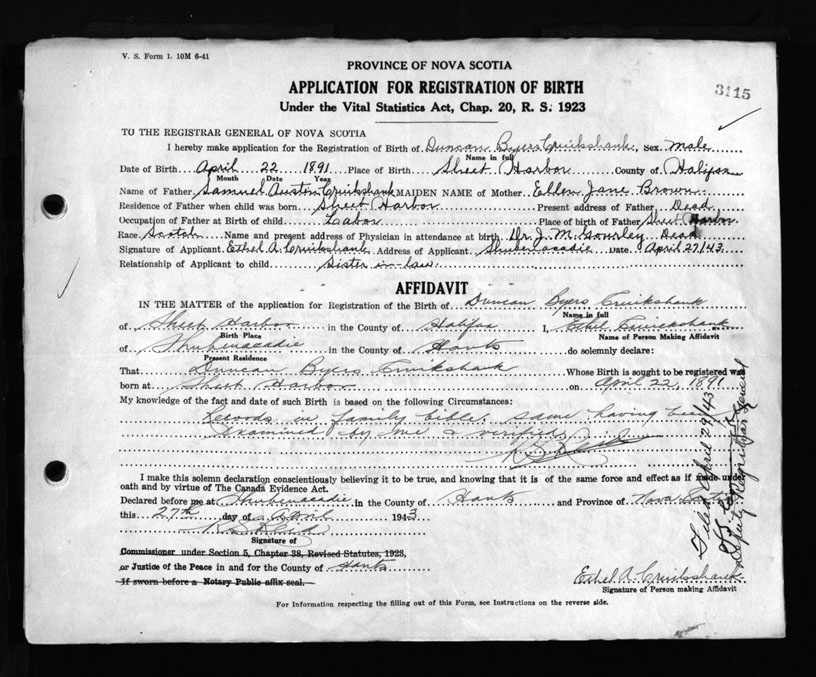 V. S. Form 1. 10M 6-41
PROVINCE OF NOVA SCOTIA
APPLICATION FOR REGISTRATION OF BIRTH
Under the Vital Statistics Act, Chap. 20, R. S. 1923
3115
TO THE REGISTRAR GENERAL OF NOVA SCOTIA
I hereby make application for the Registration of Birth of Duncan Byers Cruikshank, Sex male
Name in full
Date of Birth April 22 1891 Place of Birth Sheet Harbor County of Halifax
Month Date Year
Name of Father Samuel Austen Cruikshank MAIDEN NAME of Mother Ellen Jane Brown
Residence of Father when child was born Sheet Harbor Present address of Father Dead
Occupation of Father at Birth of child Labor Place of birth of Father Sheet Harbor
Race Scotch Name and present address of Physician in attendance at birth Dr. J. M. Gourley Dead
Signature of Applicant Ethel A. Cruikshank Address of Applicant Shubenacadie Date April 27/43
Relationship of Applicant to child Sister in-law
AFFIDAVIT
IN THE MATTER of the application for Registration of the Birth of Duncan Byers Cruikshank
Name in full
of Sheet Harbor in the County of Halifax I, Ethel Cruickshank
Birth Place Name of Person Making Affidavit
of Shubenacadie in the County of Hants do solemnly declare:
Present Residence
That Duncan Byers Cruikshank Whose Birth is sought to be registered was
born at Sheet Harbor on April 22, 1891
My knowledge of the fact and date of such Birth is based on the following Circumstances:
Records in family bible, same having been
examined by me & verified
I make this solemn declaration conscientiously believing it to be true, and knowing that it is of the same force and effect as if made under
oath and by virtue of The Canada Evidence Act.
Declared before me at Shubenacadie in the County of Hants and Province of Nova Scotia
this 27th day of April 1943
Signature of
Commissioner under Section 5, Chapter 38, Revised Statutes, 1923,
or Justice of the Peace in and for the County of Hants
If sworn before a Notary Public affix seal.
Ethel A. Cruikshank
Signature of Person making Affidavit
For Information respecting the filling out of this Form, see Instructions on the reverse side.
Filed April 29/43
Deputy Registrar General